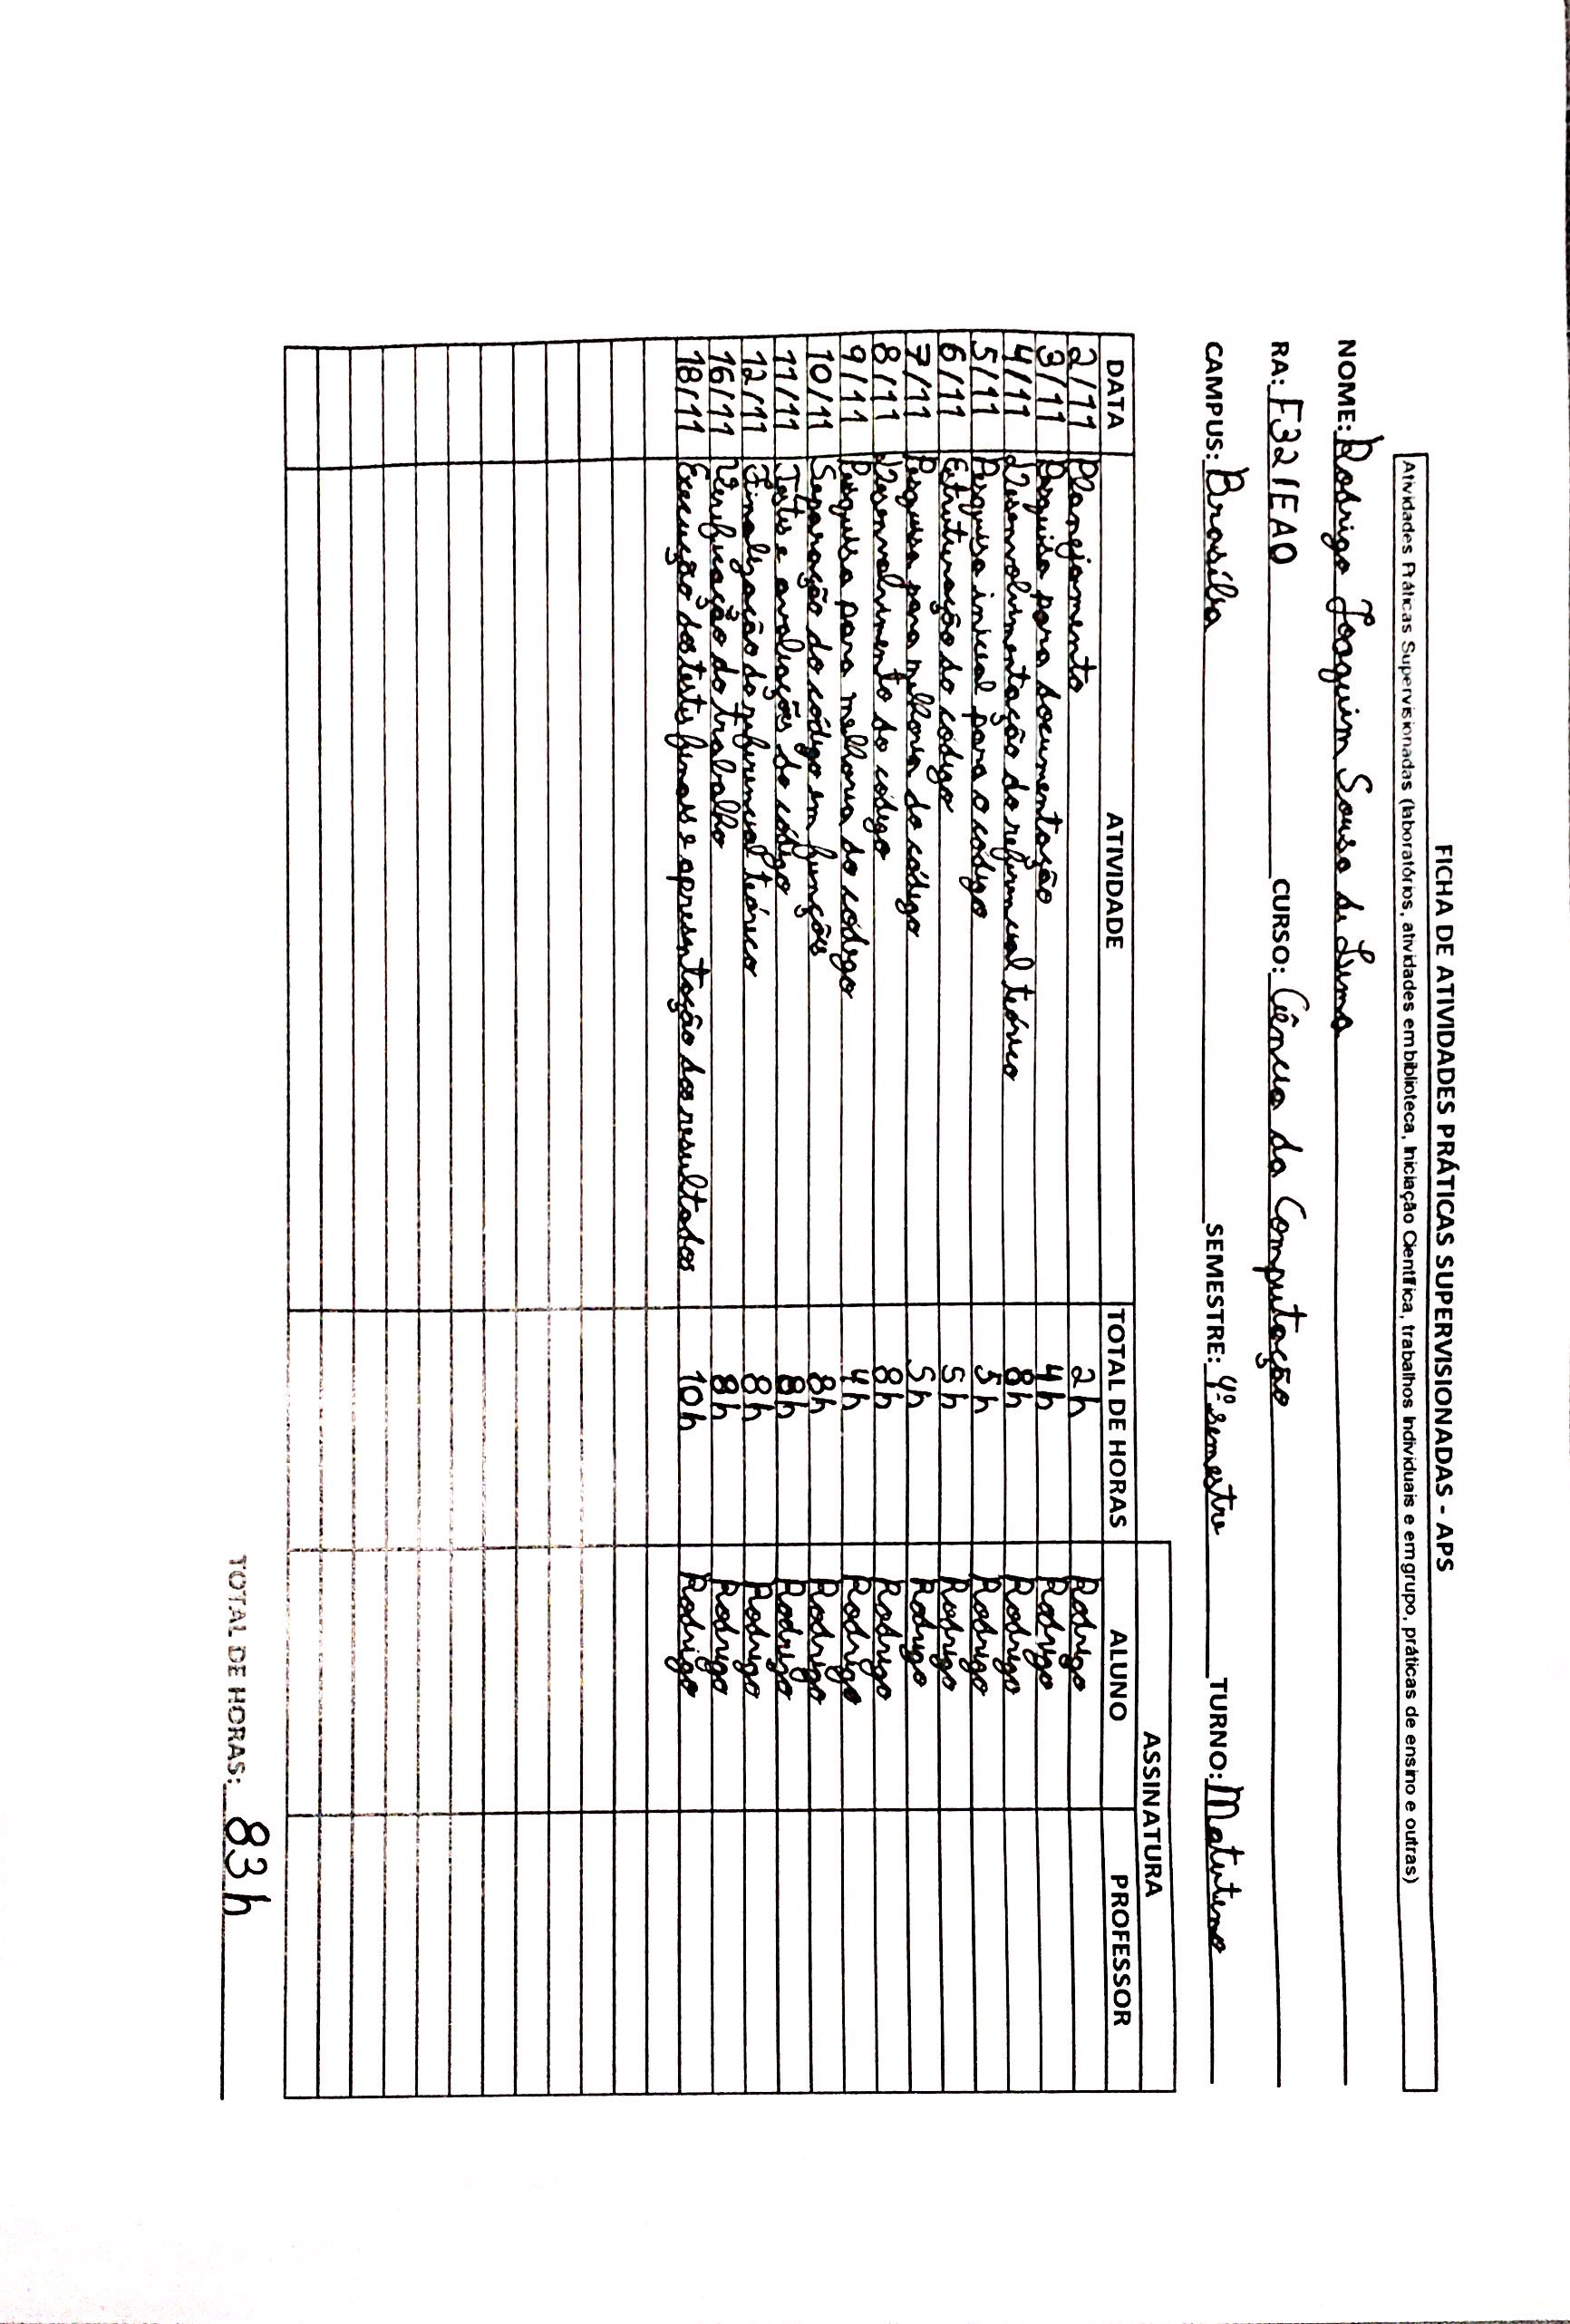 FICHA DE ATIVIDADES PRÁTICAS SUPERVISIONADAS - APS
Atividades Práticas Supervisionadas (laboratórios, atividades em biblioteca, Iniciação Científica, trabalhos Individuais e em grupo, práticas de ensino e outras)
NOME: Rodrigo Joaquim Sousa de Lima
RA: F321EA0 CURSO: Ciência da Computação
CAMPUS: Brasília SEMESTRE: 4º semestre TURNO: Matutino
ASSINATURA
DATA ATIVIDADE TOTAL DE HORAS ALUNO PROFESSOR
2/11 Planejamento 2h Rodrigo
3/11 Pesquisa para documentação 4h Rodrigo
4/11 Desenvolvimentação do referencial teórico 8h Rodrigo
5/11 Pesquisa inicial para o código 5h Rodrigo
6/11 Estruturação do código 5h Rodrigo
7/11 Pesquisa para melhoria do código 5h Rodrigo
8/11 Desenvolvimento do código 8h Rodrigo
9/11 Pesquisa para melhoria do código 4h Rodrigo
10/11 Separação do código em funções 8h Rodrigo
11/11 Testes e avaliações do código 8h Rodrigo
12/11 Finalização do referencial teórico 8h Rodrigo
16/11 Verificação do trabalho 8h Rodrigo
18/11 Execução dos testes finais e apresentação dos resultados 10h Rodrigo
TOTAL DE HORAS: 83h